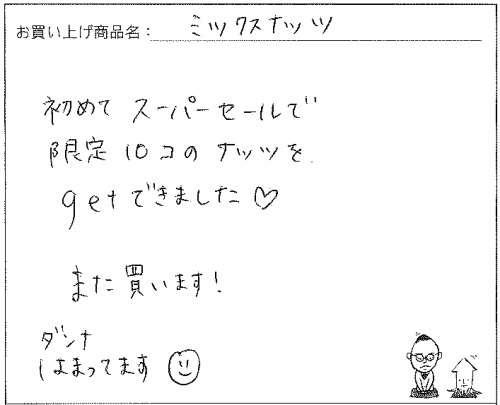 お買い上げ商品名：ミックスナッツ
初めて スーパーセールで
限定 10コの ナッツを
getできました♡
また買います！
ダンナ
はまってます